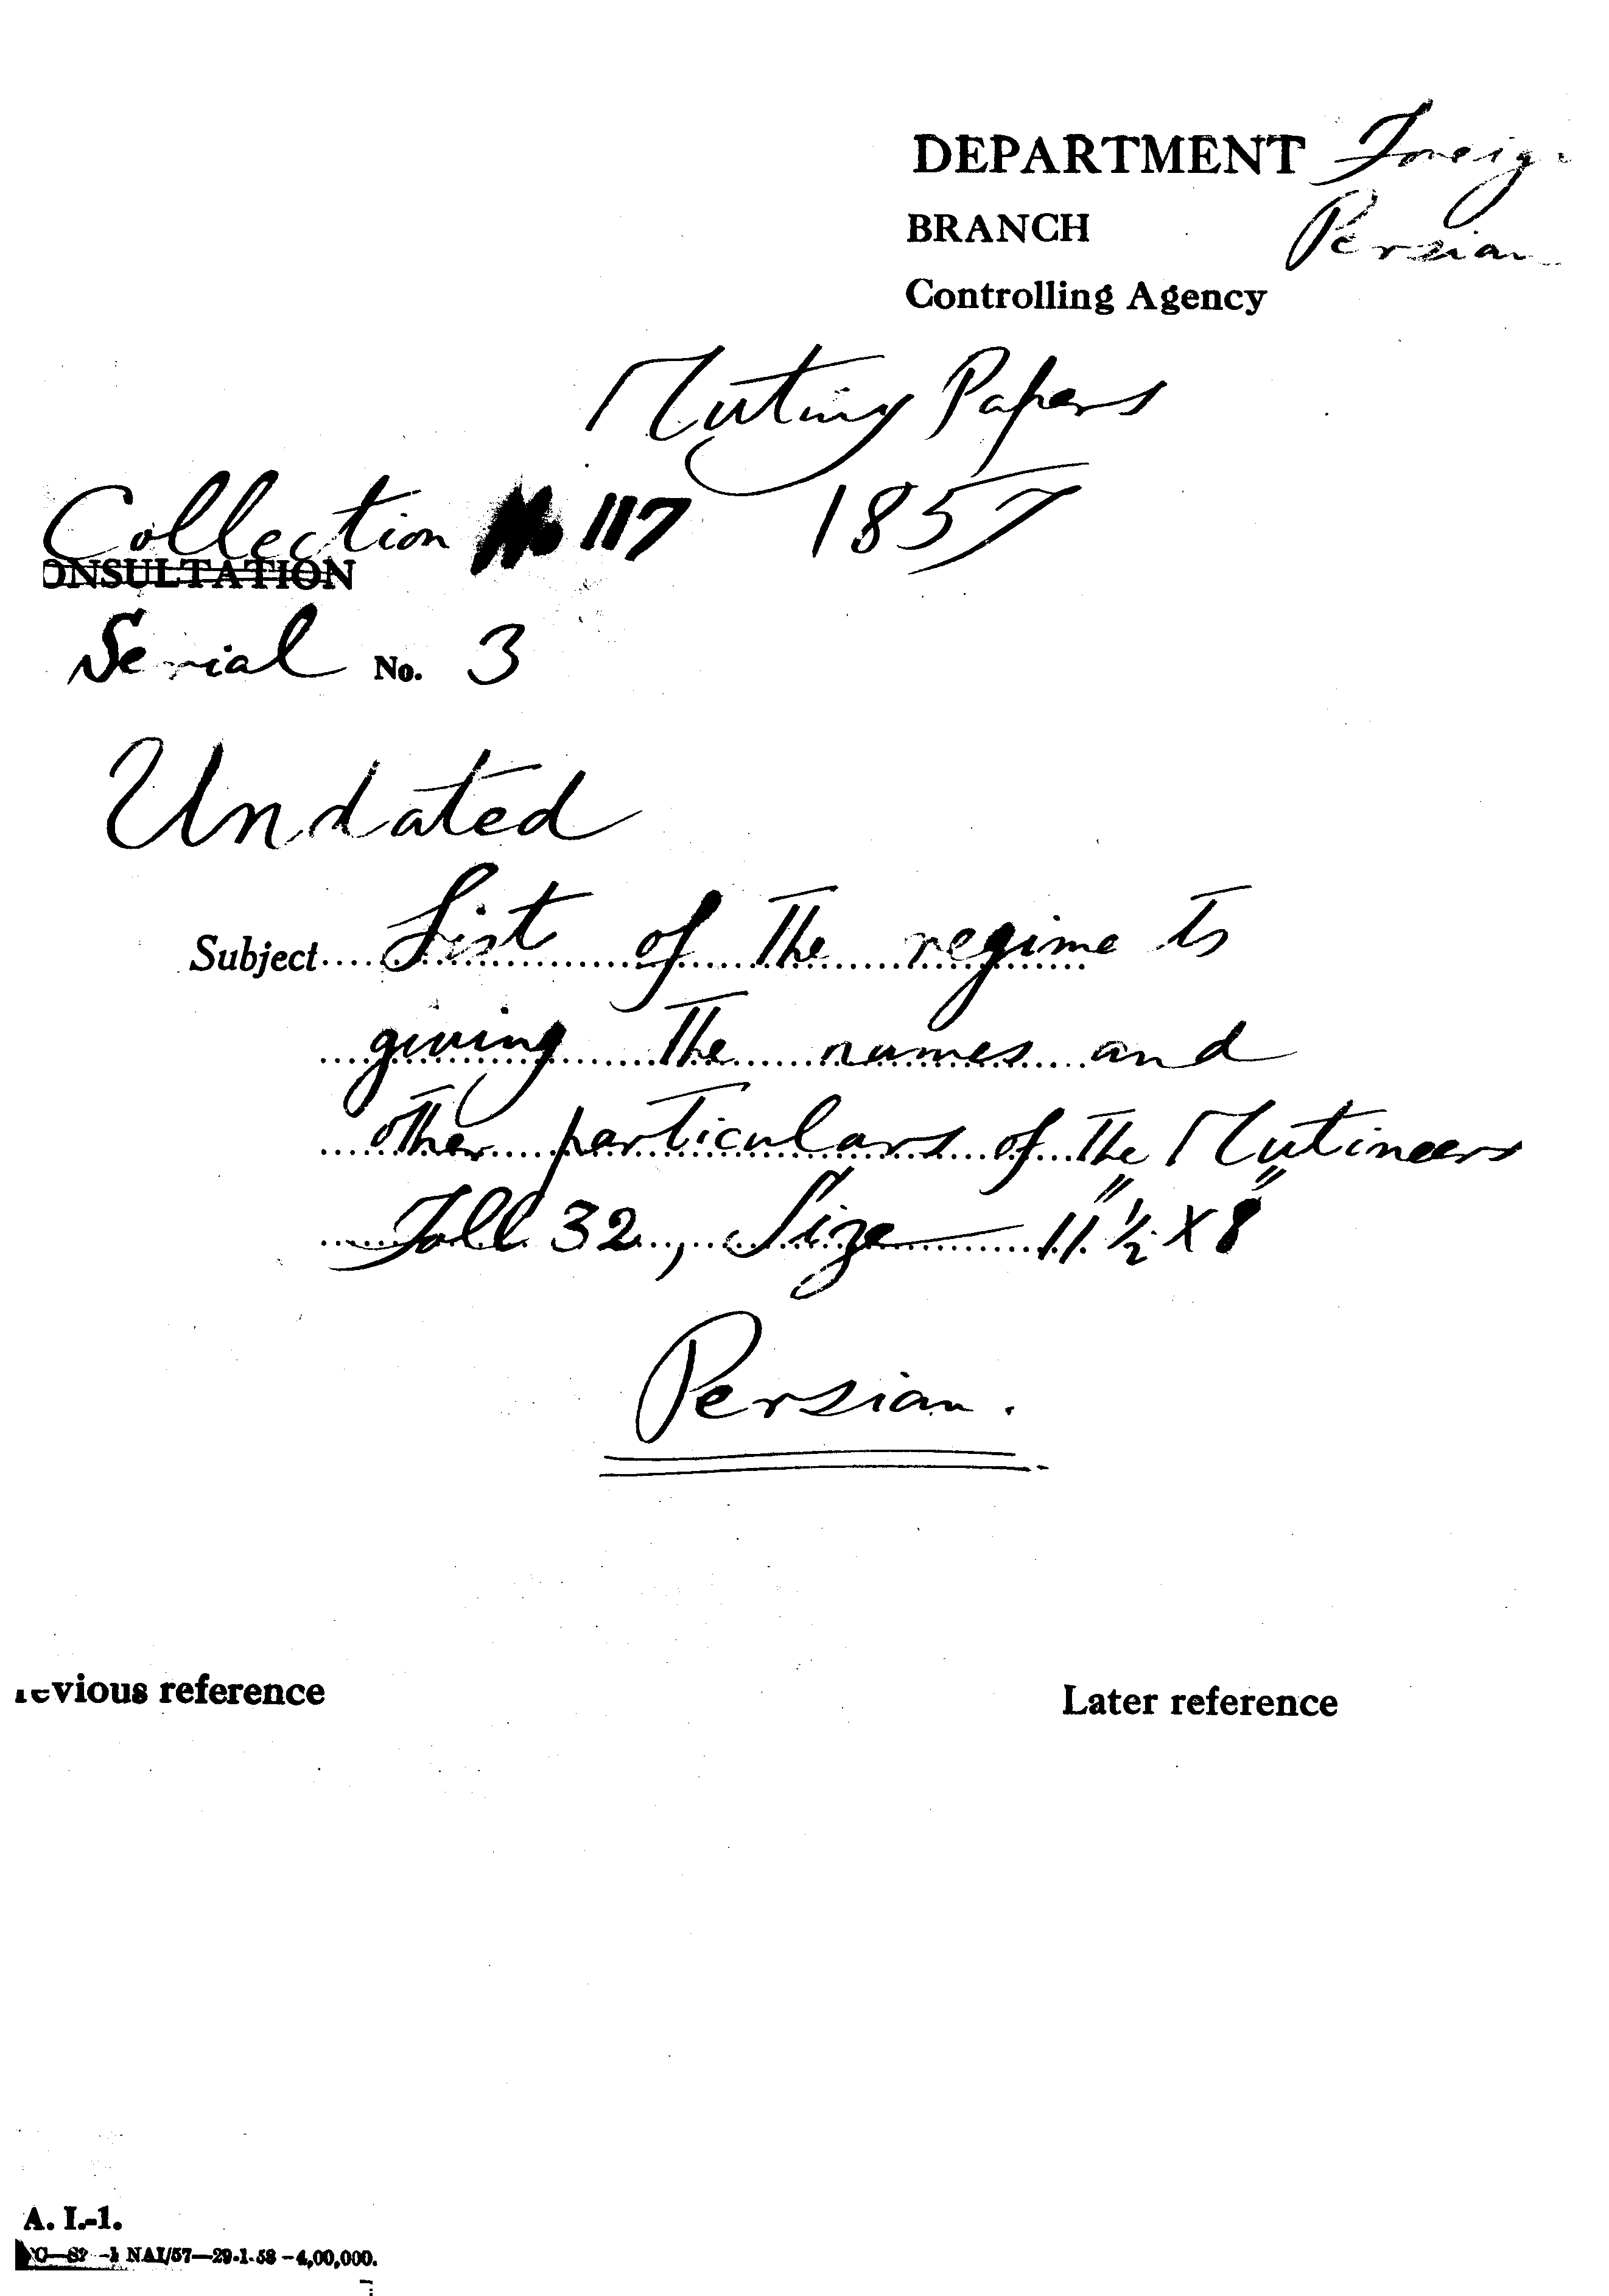 DEPARTMENT Foreign
BRANCH Persian
Controlling Agency
Mutiny Papers
Collection No 117 1857
ONSULTATION
Serial No. 3
Undated
Subject List of the regime ts
giving the names and
other particulars of the Mutineers
Foll 32, Size 11 1/2" X 8"
Persian.
evious reference Later reference
A. I.-1.
NAI/57—29-1-58—4,00,000.